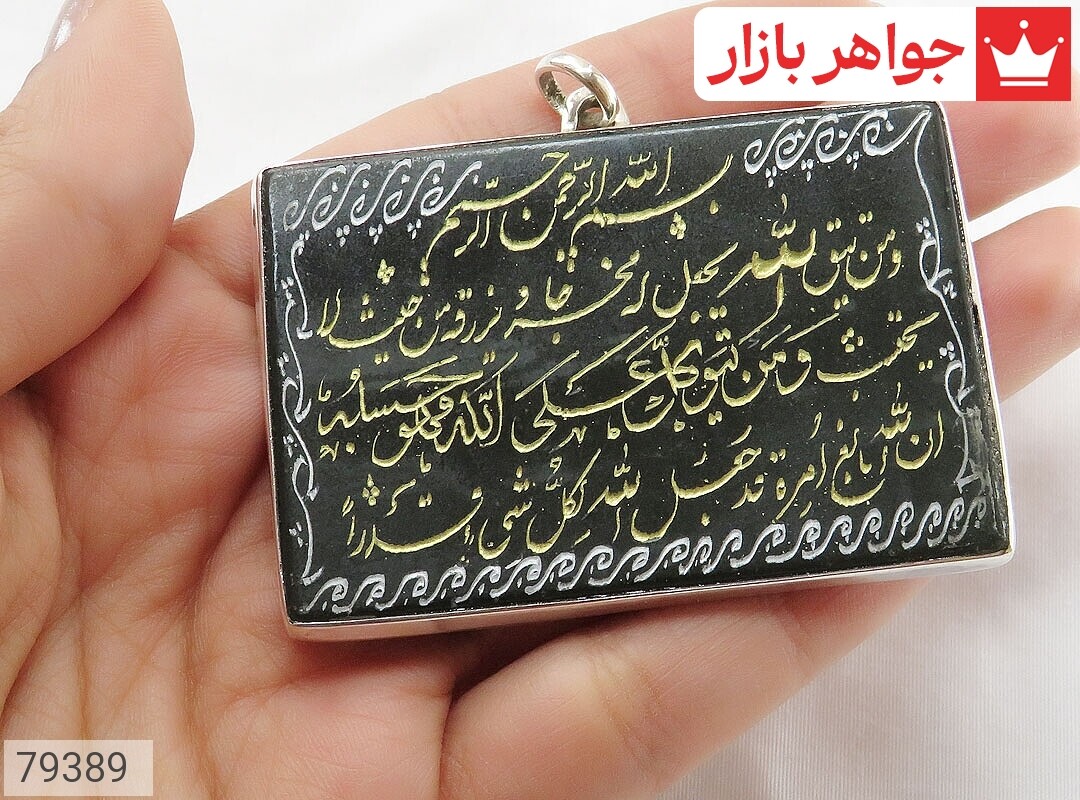 جواهر بازار
بسم الله الرحمن الرحیم
ومن یتق الله یجعل له مخرجا و یرزقه من حیث لا
یحتسب و من یتوکل علی الله فهو حسبه
ان الله بالغ امره قد جعل الله لکل شی قدرا
79389